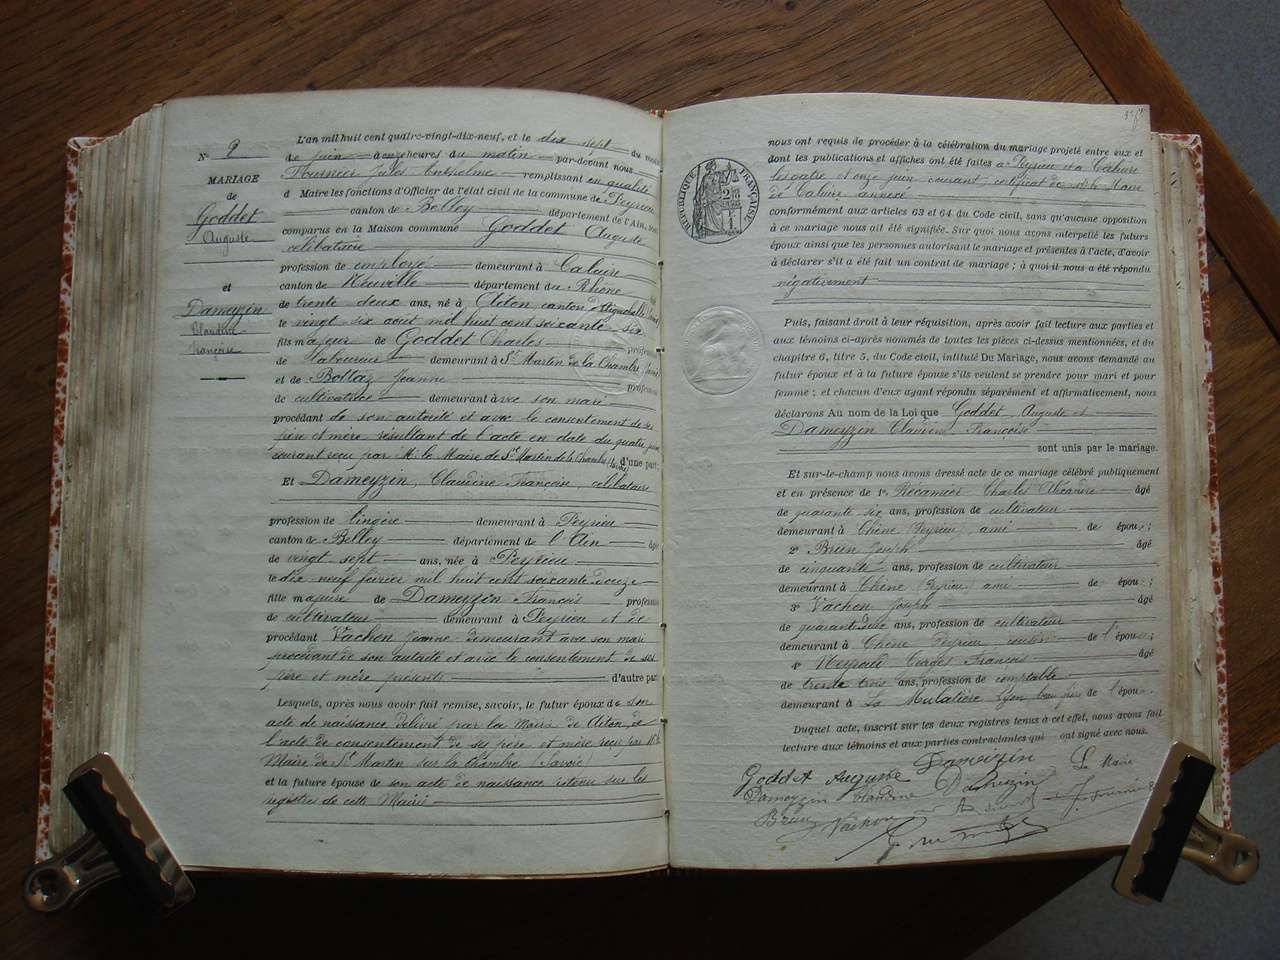 N° 9
MARIAGE
de
Goddet
Auguste
et
Dameyzin
Claudine
Françoise
L'an mil huit cent quatre-vingt-dix-neuf, et le dix sept du mois
de juin à onze heures du matin par-devant nous
Fournier Jules Anthelme remplissant en qualité
d Maire les fonctions d'Officier de l'état civil de la commune de Peyrieu
canton de Belley département de l'Ain, sont
comparus en la Maison commune Goddet Auguste
célibataire
profession de employé demeurant à Caluire
canton de Neuville département du Rhône âgé
de trente deux ans, né à Aiton, canton d'Aiguebelle
le vingt six août mil huit cent soixante six
fils majeur de Goddet Charles profession
de laboureur demeurant à St Martin de la Chambre
et de Bollaz Jeanne profession
de cultivatrice demeurant avec son mari
procédant de son autorité et avec le consentement de ses
père et mère résultant de l'acte en date du quatre juin
courant reçu par M. le Maire de St Martin de la Chambre d'une part;
Et Dameyzin, Claudine Françoise, célibataire
profession de lingère demeurant à Peyrieu
canton de Belley département de l'Ain âgée
de vingt sept ans, née à Peyrieu
le dix neuf février mil huit cent soixante douze
fille majeure de Dameyzin François profession
de cultivateur demeurant à Peyrieu et de
procédant Vachon Jeanne demeurant avec son mari
procédant de son autorité et avec le consentement de ses
père et mère présents d'autre part
Lesquels, après nous avoir fait remise, savoir, le futur époux de son
acte de naissance délivré par la Mairie de Aiton, de
l'acte de consentement de ses père et mère reçu par Mr le
Maire de St Martin sur la Chambre (Savoie)
et la future épouse de son acte de naissance retenu sur les
registres de cette Mairie
RÉPUBLIQUE FRANÇAISE
nous ont requis de procéder à la célébration du mariage projeté entre eux et
dont les publications et affiches ont été faites à Peyrieu et à Caluire
les quatre et onze juin courant, certificat de Mr le Maire
de Caluire annexé
conformément aux articles 63 et 64 du Code civil, sans qu'aucune opposition
à ce mariage nous ait été signifiée. Sur quoi nous avons interpellé les futurs
époux ainsi que les personnes autorisant le mariage et présentes à l'acte, d'avoir
à déclarer s'il a été fait un contrat de mariage; à quoi il nous a été répondu
négativement
Puis, faisant droit à leur réquisition, après avoir fait lecture aux parties et
aux témoins ci-après nommés de toutes les pièces ci-dessus mentionnées, et du
chapitre 6, titre 5, du Code civil, intitulé Du Mariage, nous avons demandé au
futur époux et à la future épouse s'ils veulent se prendre pour mari et pour
femme; et chacun d'eux ayant répondu séparément et affirmativement, nous
déclarons Au nom de la Loi que Goddet, Auguste et
Dameyzin Claudine Françoise
sont unis par le mariage.
Et sur-le-champ nous avons dressé acte de ce mariage célébré publiquement
et en présence de 1° Récamier Charles Alexandre âgé
de quarante six ans, profession de cultivateur
demeurant à Chêne (Peyrieu) ami de épou;
2° Brun Joseph âgé
de cinquante ans, profession de cultivateur
demeurant à Chêne (Peyrieu) ami de épou;
3° Vachon Joseph âgé
de quarante ans, profession de cultivateur
demeurant à Chêne Peyrieu de l'épou;
4° François âgé
de trente trois ans, profession de comptable
demeurant à La Mulatière Lyon de l'épou.
Duquel acte, inscrit sur les deux registres tenus à cet effet, nous avons fait
lecture aux témoins et aux parties contractantes qui ont signé avec nous.
Goddet Auguste Dameizin Le Maire
Dameyzin Claudine Dameizin Fournier
Brun Vachon